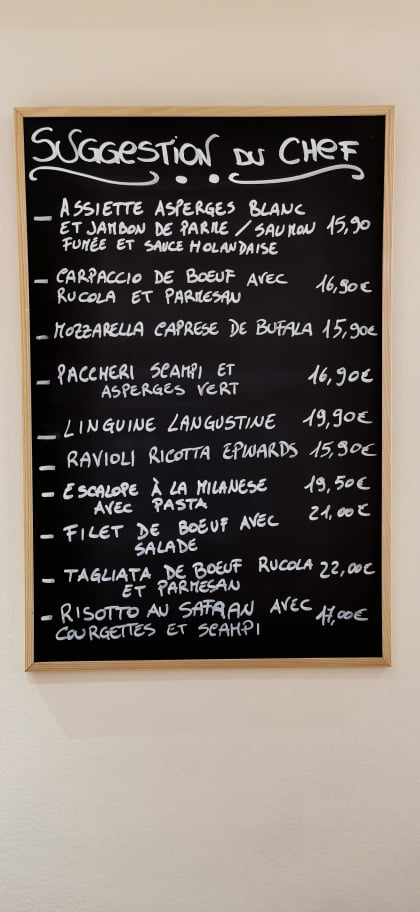 SUGGESTION DU CHEF
- ASSIETTE ASPERGES BLANC
ET JAMBON DE PARME / SAUMON 15,90
FUMÉE ET SAUCE HOLANDAISE
- CARPACCIO DE BOEUF AVEC 16,90€
RUCOLA ET PARMESAN
- MOZZARELLA CAPRESE DE BUFALA 15,90€
- PACCHERI SCAMPI ET 16,90€
ASPERGES VERT
- LINGUINE LANGUSTINE 19,90€
- RAVIOLI RICOTTA EPINARDS 15,90€
- ESCALOPE À LA MILANESE 19,50€
AVEC PASTA
- FILET DE BOEUF AVEC 21,00€
SALADE
- TAGLIATA DE BOEUF RUCOLA 22,00€
ET PARMESAN
- RISOTTO AU SAFRAN AVEC 17,00€
COURGETTES ET SCAMPI